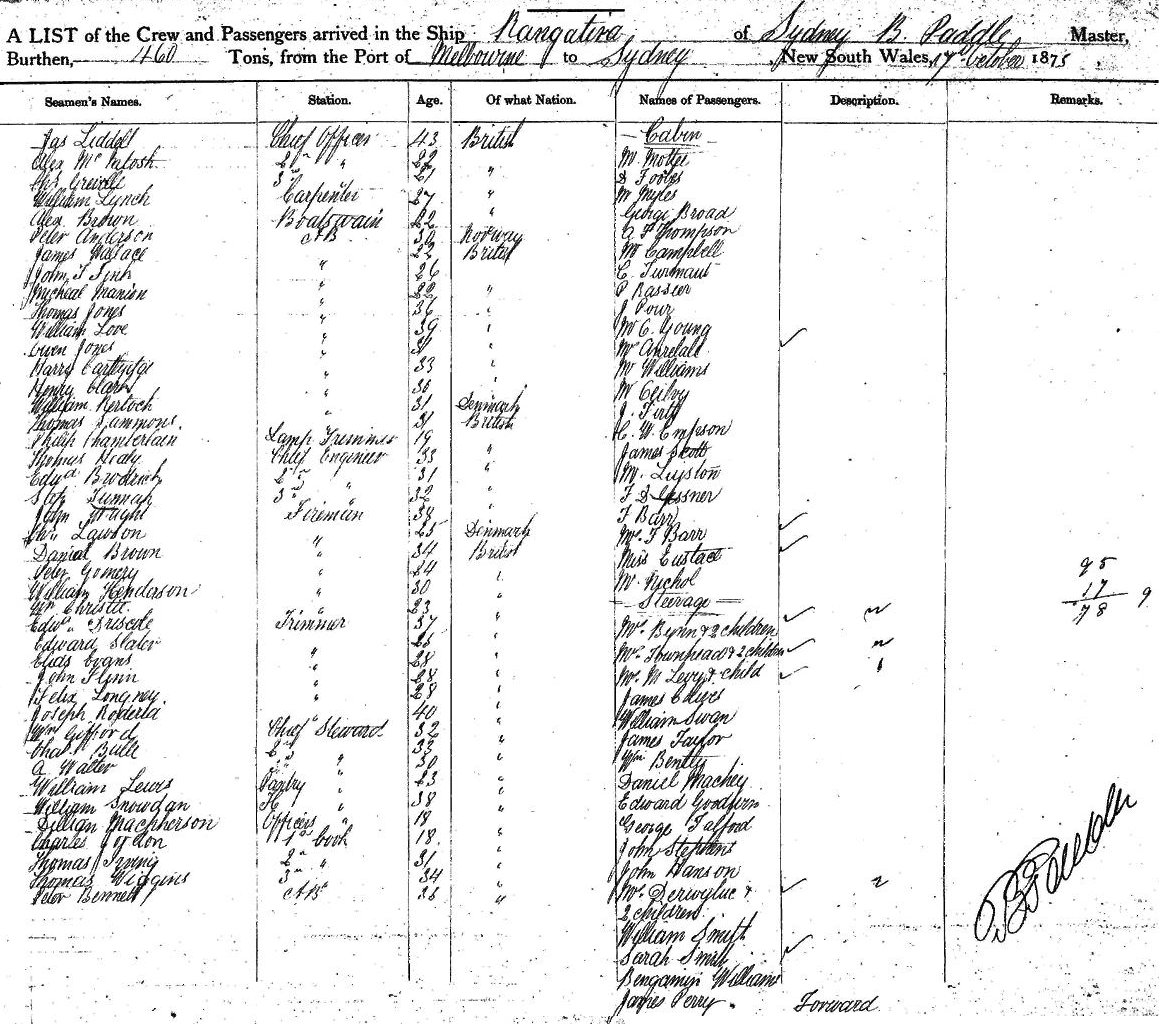 A LIST of the Crew and Passengers arrived in the Ship Rangatira of Sydney B. Paddle Master,
Burthen, 460 Tons, from the Port of Melbourne to Sydney, New South Wales, 17 October 1875
Seamen's Names. Station. Age. Of what Nation. Names of Passengers. Description. Remarks.
Jas Liddell Chief Officer 43 British Cabin
Alex Mc Intosh 2nd " 22 " Mr Motter
Chs Greville 3rd " D Forbes
William Lynch Carpenter 27 " Mr Myles
Alex Brown Boatswain 22 " George Broad
Peter Anderson AB 30 Norway A F Thompson
James Wallace 22 British Mr Campbell
John T Fink " 26 C. Turmaut
Micheal Manion " 22 " P Basseer
Thomas Jones " 36 " J Pour
William Love " 39 " Mr C. Young
Owen Jones " 31 " Mrs
Harry " 33 " Mr Williams
Henry Clark " 30 " Mr Ogilvy
William Bertoch " 31 Denmark J.
Thomas Sammons. 31 British H. W. Empson
Philip Chamberlain Lamp Trimmer 19 " James Scott
Thomas Healy Chief Engineer 33 " Mr.
Edwd Brodrick 2nd " 31 " F D Gessner
Tunnah 3rd " 32 " F Barr
John Wright Fireman 38 " Mrs F Barr
Lawson " 25 Denmark Miss Eustace
Daniel Brown " 34 British Mr Nichol
Peter Gomery " 24 " Steerage 95
William Henderson " 30 " 17
Wm Christie " 23 " 78 9
Edwd Driscole Trimmer 37 " Mrs Bynn & 2 children 2
Edward Slater " 25 " Mrs Townhead & 2 children 2
Elias Evans " 28 " Mrs M Levy & child 1
John Flynn " 28 " James
Felix Longney. " 28 " William Swan
Joseph Roderla " 40 " James Taylor
Wm Gifford Chief Steward 32 " Wm Bently
Chas Bull 2nd " 33 " Daniel Mackey
A Walter " 30 " Edward Goodwin
William Lewis Pantry " 23 " George Talford
William Snowdan " 38 " John Stephens
Macpherson Officers " 19 " John Hanson
Charles Gordon 1st Cook 18. " Mrs & 2
Thomas Irving 2nd " 31 " 2 children
Thomas Wiggins 3rd " 34 " William Smith
Peter Bennett AB 38 " Sarah Smith
Bengamyn Williams
James Perry. Forward
S B Paddle